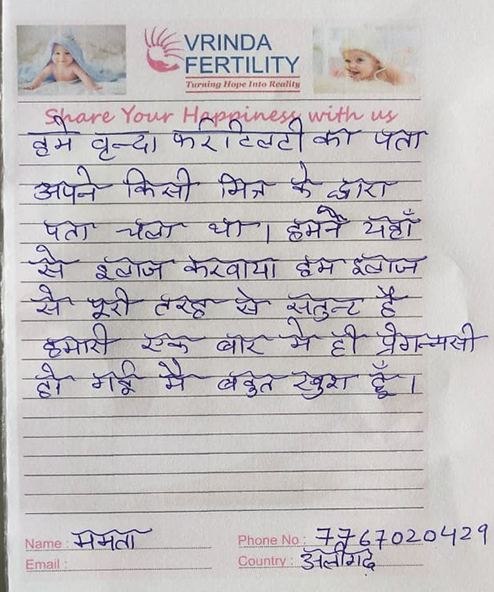 VRINDA
FERTILITY
Turning Hope Into Reality
Share Your Happiness with us
हमे वृन्दा फर्टिलिटी का पता
अपने किसी मित्र के द्वारा
पता चला था। हमने यहाँ
से इलाज करवाया हम इलाज
से पूरी तरह से सतुन्ट है
हमारी एक बार मे ही प्रेगन्सी
हो गई मै बहुत खुश हूँ।
Name : ममता
Phone No : 7767020429
Email :
Country : अलीगढ